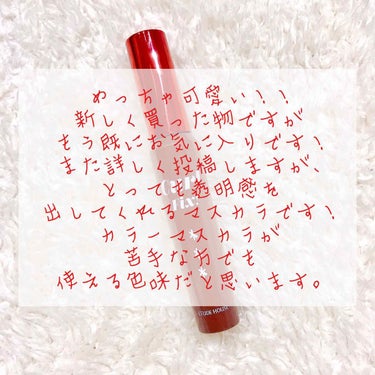 めっちゃ可愛い！！
新しく買った物ですが
もう既にお気に入りです！
また詳しく投稿しますが、
とっても透明感を
出してくれるマスカラです！
カラーマスカラが
苦手な方でも
使える色味だと思います。
ETUDE HOUSE